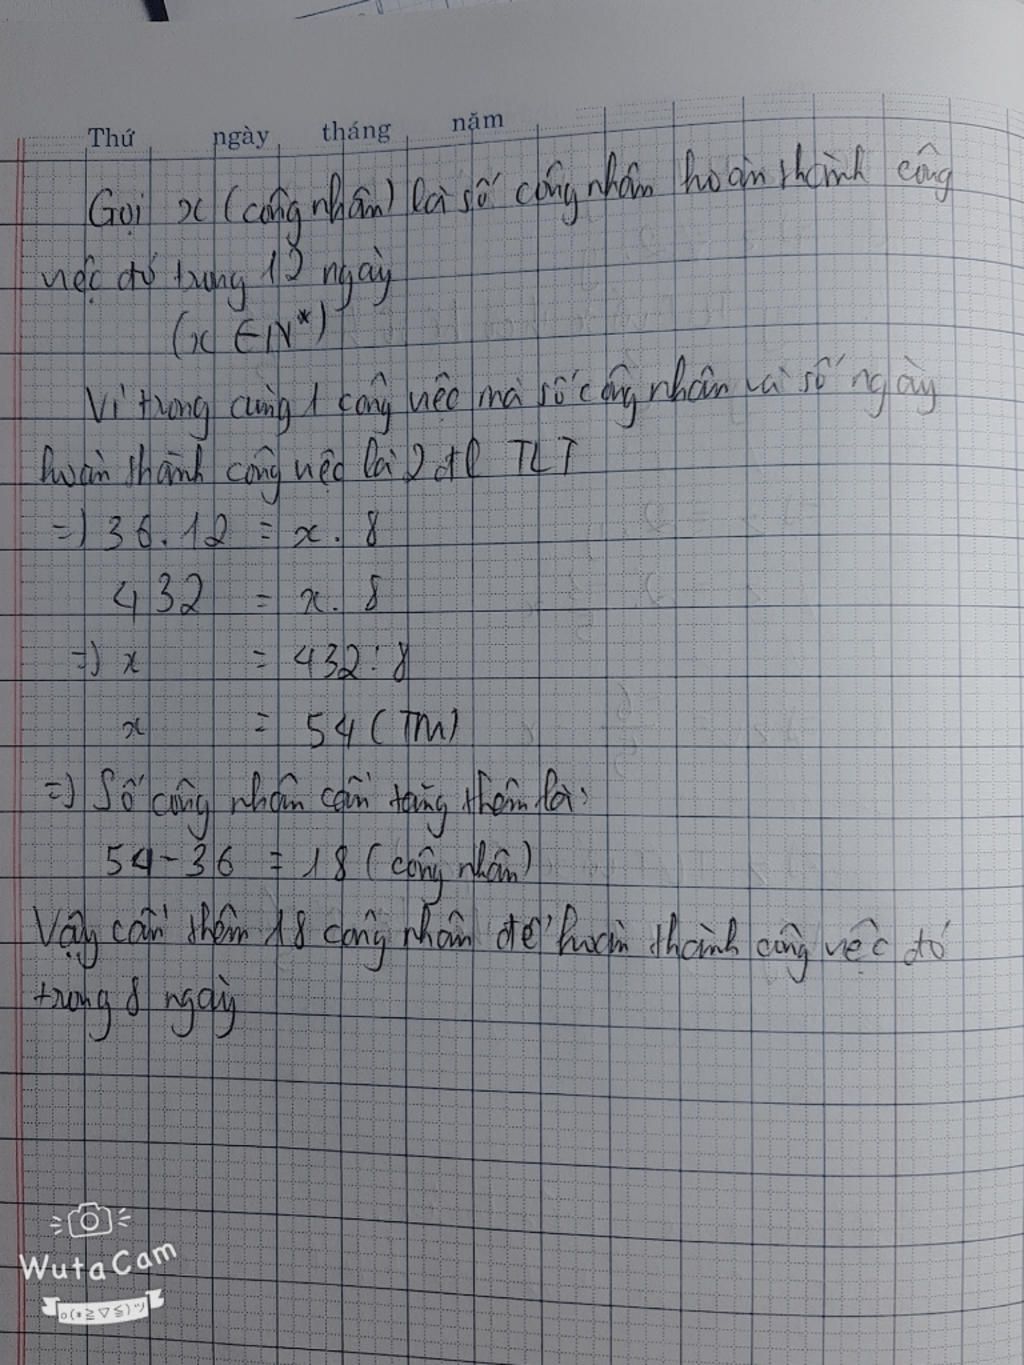 Thứ ngày tháng năm
Gọi x (công nhân) là số công nhân hoàn thành công
việc đó trong 12 ngày
(x ∈ N*)
Vì trong cùng 1 công việc mà số công nhân và số ngày
hoàn thành công việc là 2 đl TLT
=) 36.12 = x. 8
432 = x. 8
=) x = 432: 8
x = 54 (TM)
=) Số công nhân cần tăng thêm là:
54-36 = 18 (công nhân)
Vậy cần thêm 18 công nhân để hoàn thành công việc đó
trong 8 ngày
WutaCam
o(*≧▽≦)ツ